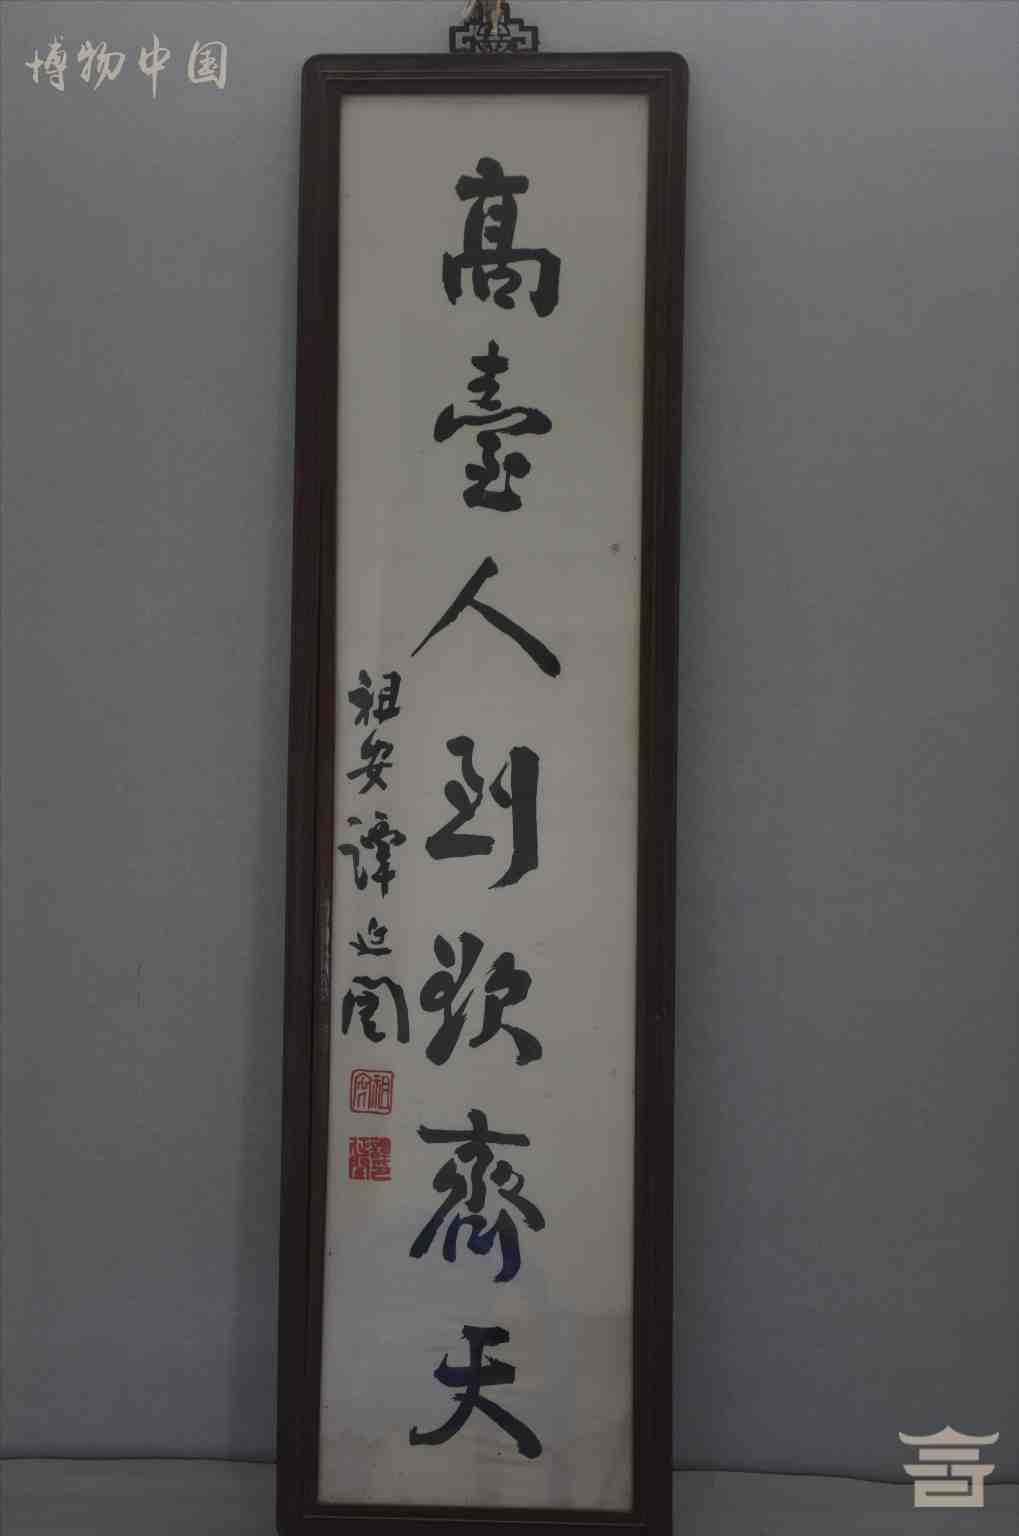 博物中国
高臺人到欲齊天
祖安譚延闓
祖安